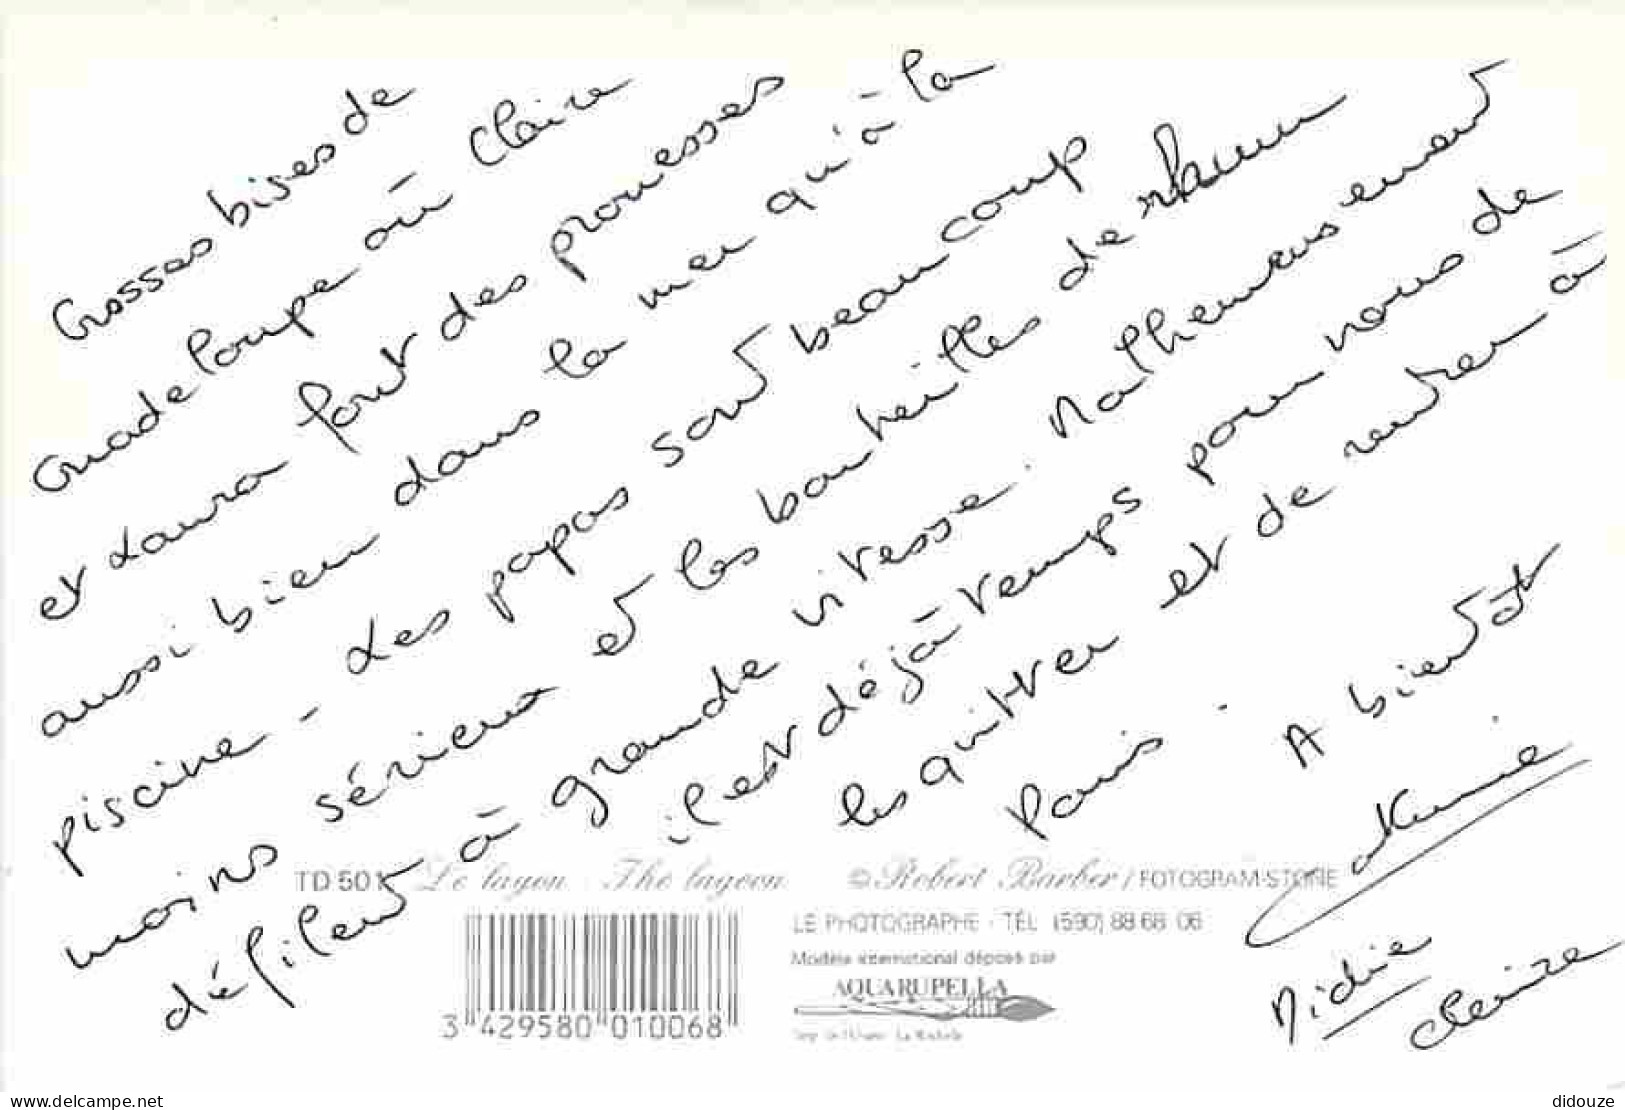 Grosses bises de
Guadeloupe où Claire
et Laura font des prouesses
aussi bien dans la mer qu'à la
piscine - Les papas sont beaucoup
moins sérieux et les bouteilles de rhum
défilent à grande vitesse. Malheureusement
il est déjà temps pour nous de
les quitter et de rentrer à
Paris.
A bientôt
Didier
Claire
TD 501 Le lagon - The lagoon © Robert Barber / FOTOGRAM-STONE
LE PHOTOGRAPHE - TÉL (590) 88 68 06
Modèle international déposé par
AQUARUPELLA
3 429580 010068
www.delcampe.net
didouze